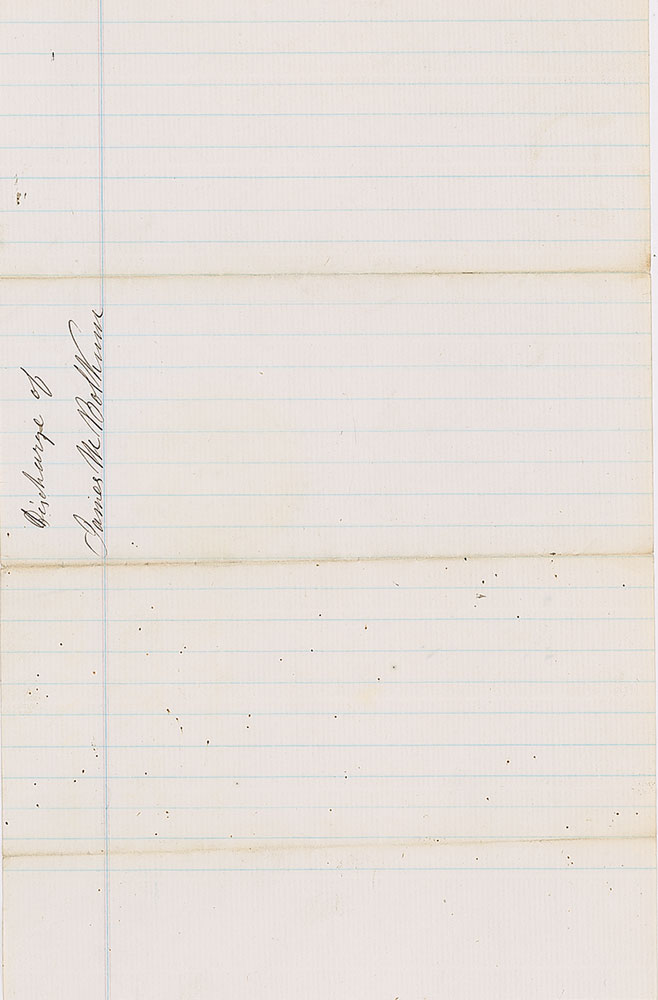 Discharge of
James M Bolthium